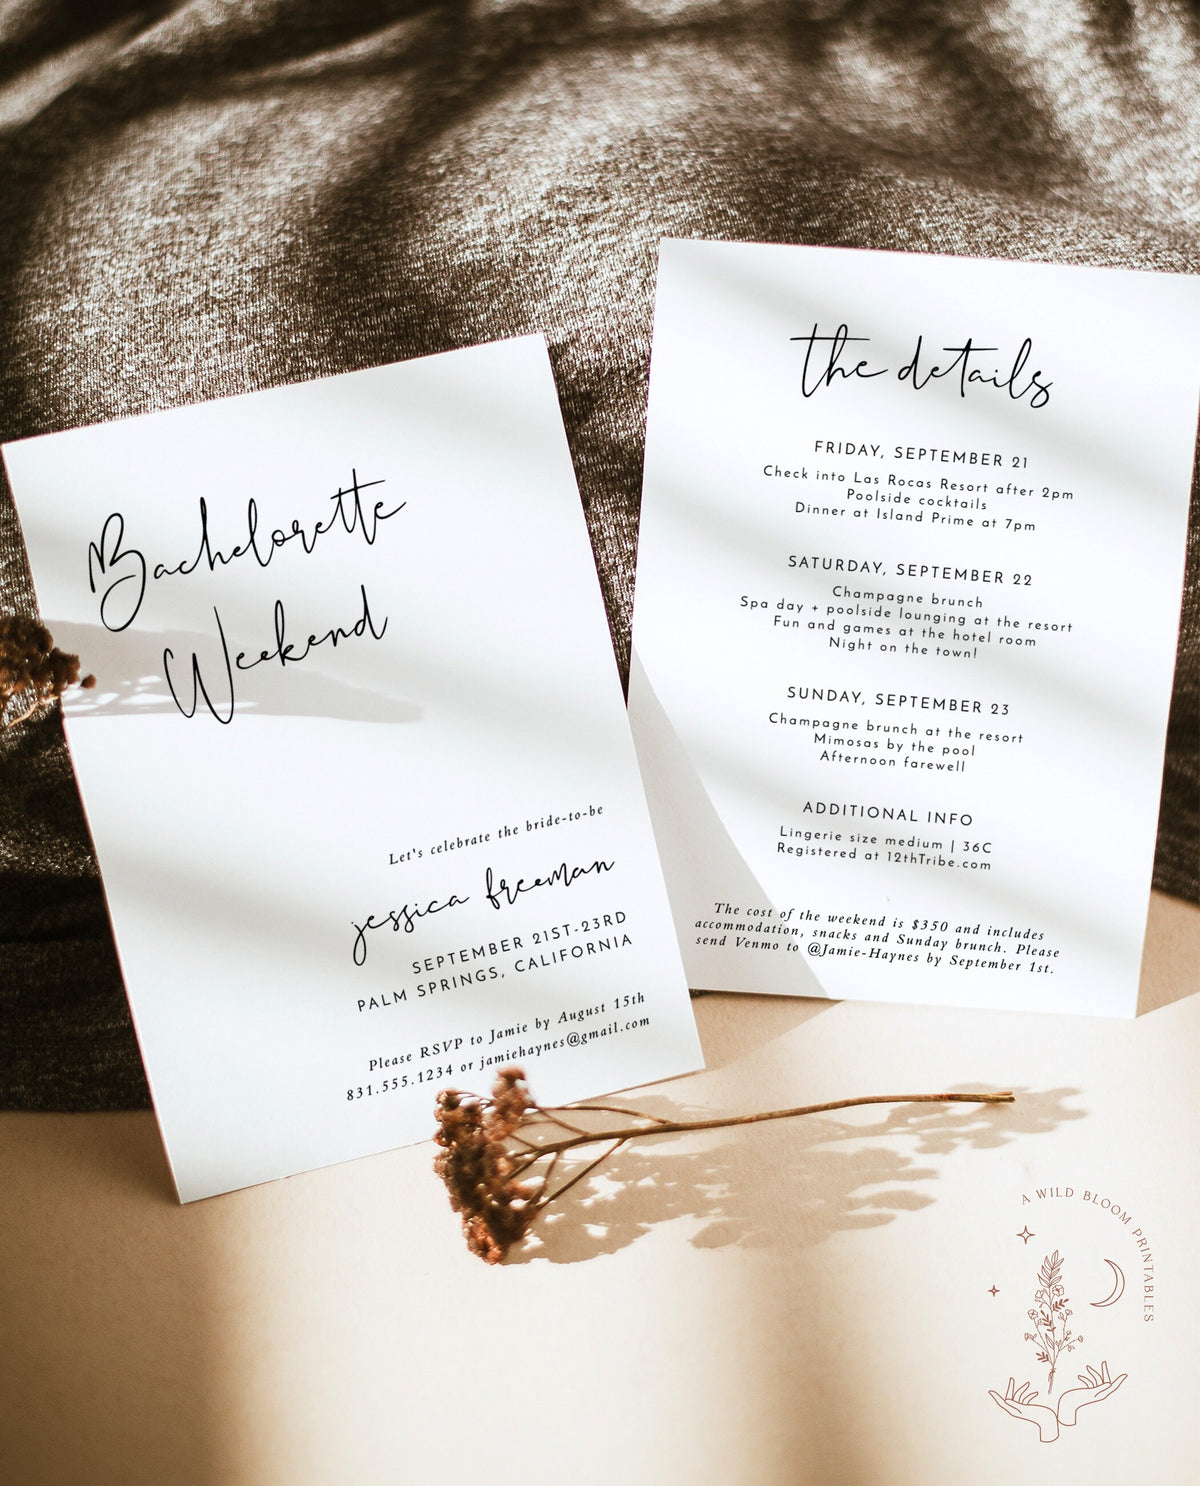 Bachelorette
Weekend
Let's celebrate the bride-to-be
jessica freeman
SEPTEMBER 21ST-23RD
PALM SPRINGS, CALIFORNIA
Please RSVP to Jamie by August 15th
831.555.1234 or jamiehaynes@gmail.com
the details
FRIDAY, SEPTEMBER 21
Check into Las Rocas Resort after 2pm
Poolside cocktails
Dinner at Island Prime at 7pm
SATURDAY, SEPTEMBER 22
Champagne brunch
Spa day + poolside lounging at the resort
Fun and games at the hotel room
Night on the town!
SUNDAY, SEPTEMBER 23
Champagne brunch at the resort
Mimosas by the pool
Afternoon farewell
ADDITIONAL INFO
Lingerie size medium | 36C
Registered at 12thTribe.com
The cost of the weekend is $350 and includes
accommodation, snacks and Sunday brunch. Please
send Venmo to @Jamie-Haynes by September 1st.
A WILD BLOOM PRINTABLES